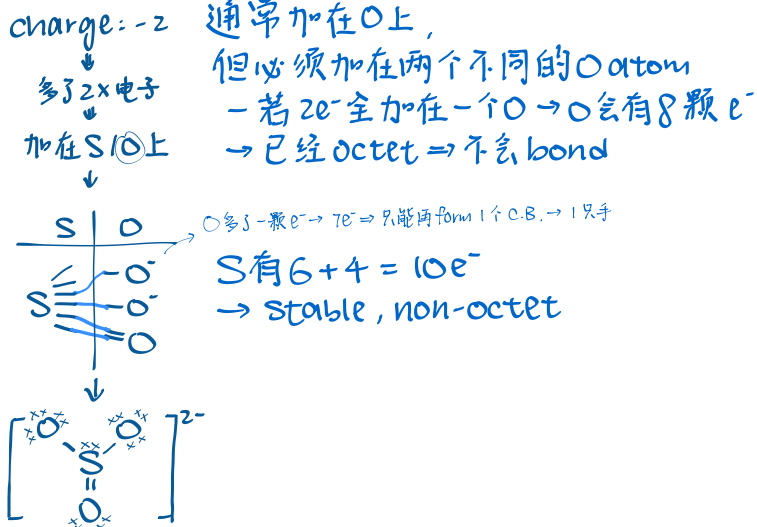 charge: -2
↓
多了2×电子
↓
加在S/O上
↓
通常加在O上,
但必须加在两个不同的O atom
- 若2e⁻全加在一个O → O会有8颗e⁻
→ 已经octet ⇒ 不会bond
S | O
O多了一颗e⁻ → 7e⁻ ⇒ 只能再form 1个C.B. → 1只手
-O⁻
S -O⁻
=O
S有6+4 = 10e⁻
→ stable, non-octet
↓
[ O O ]²⁻
S
O